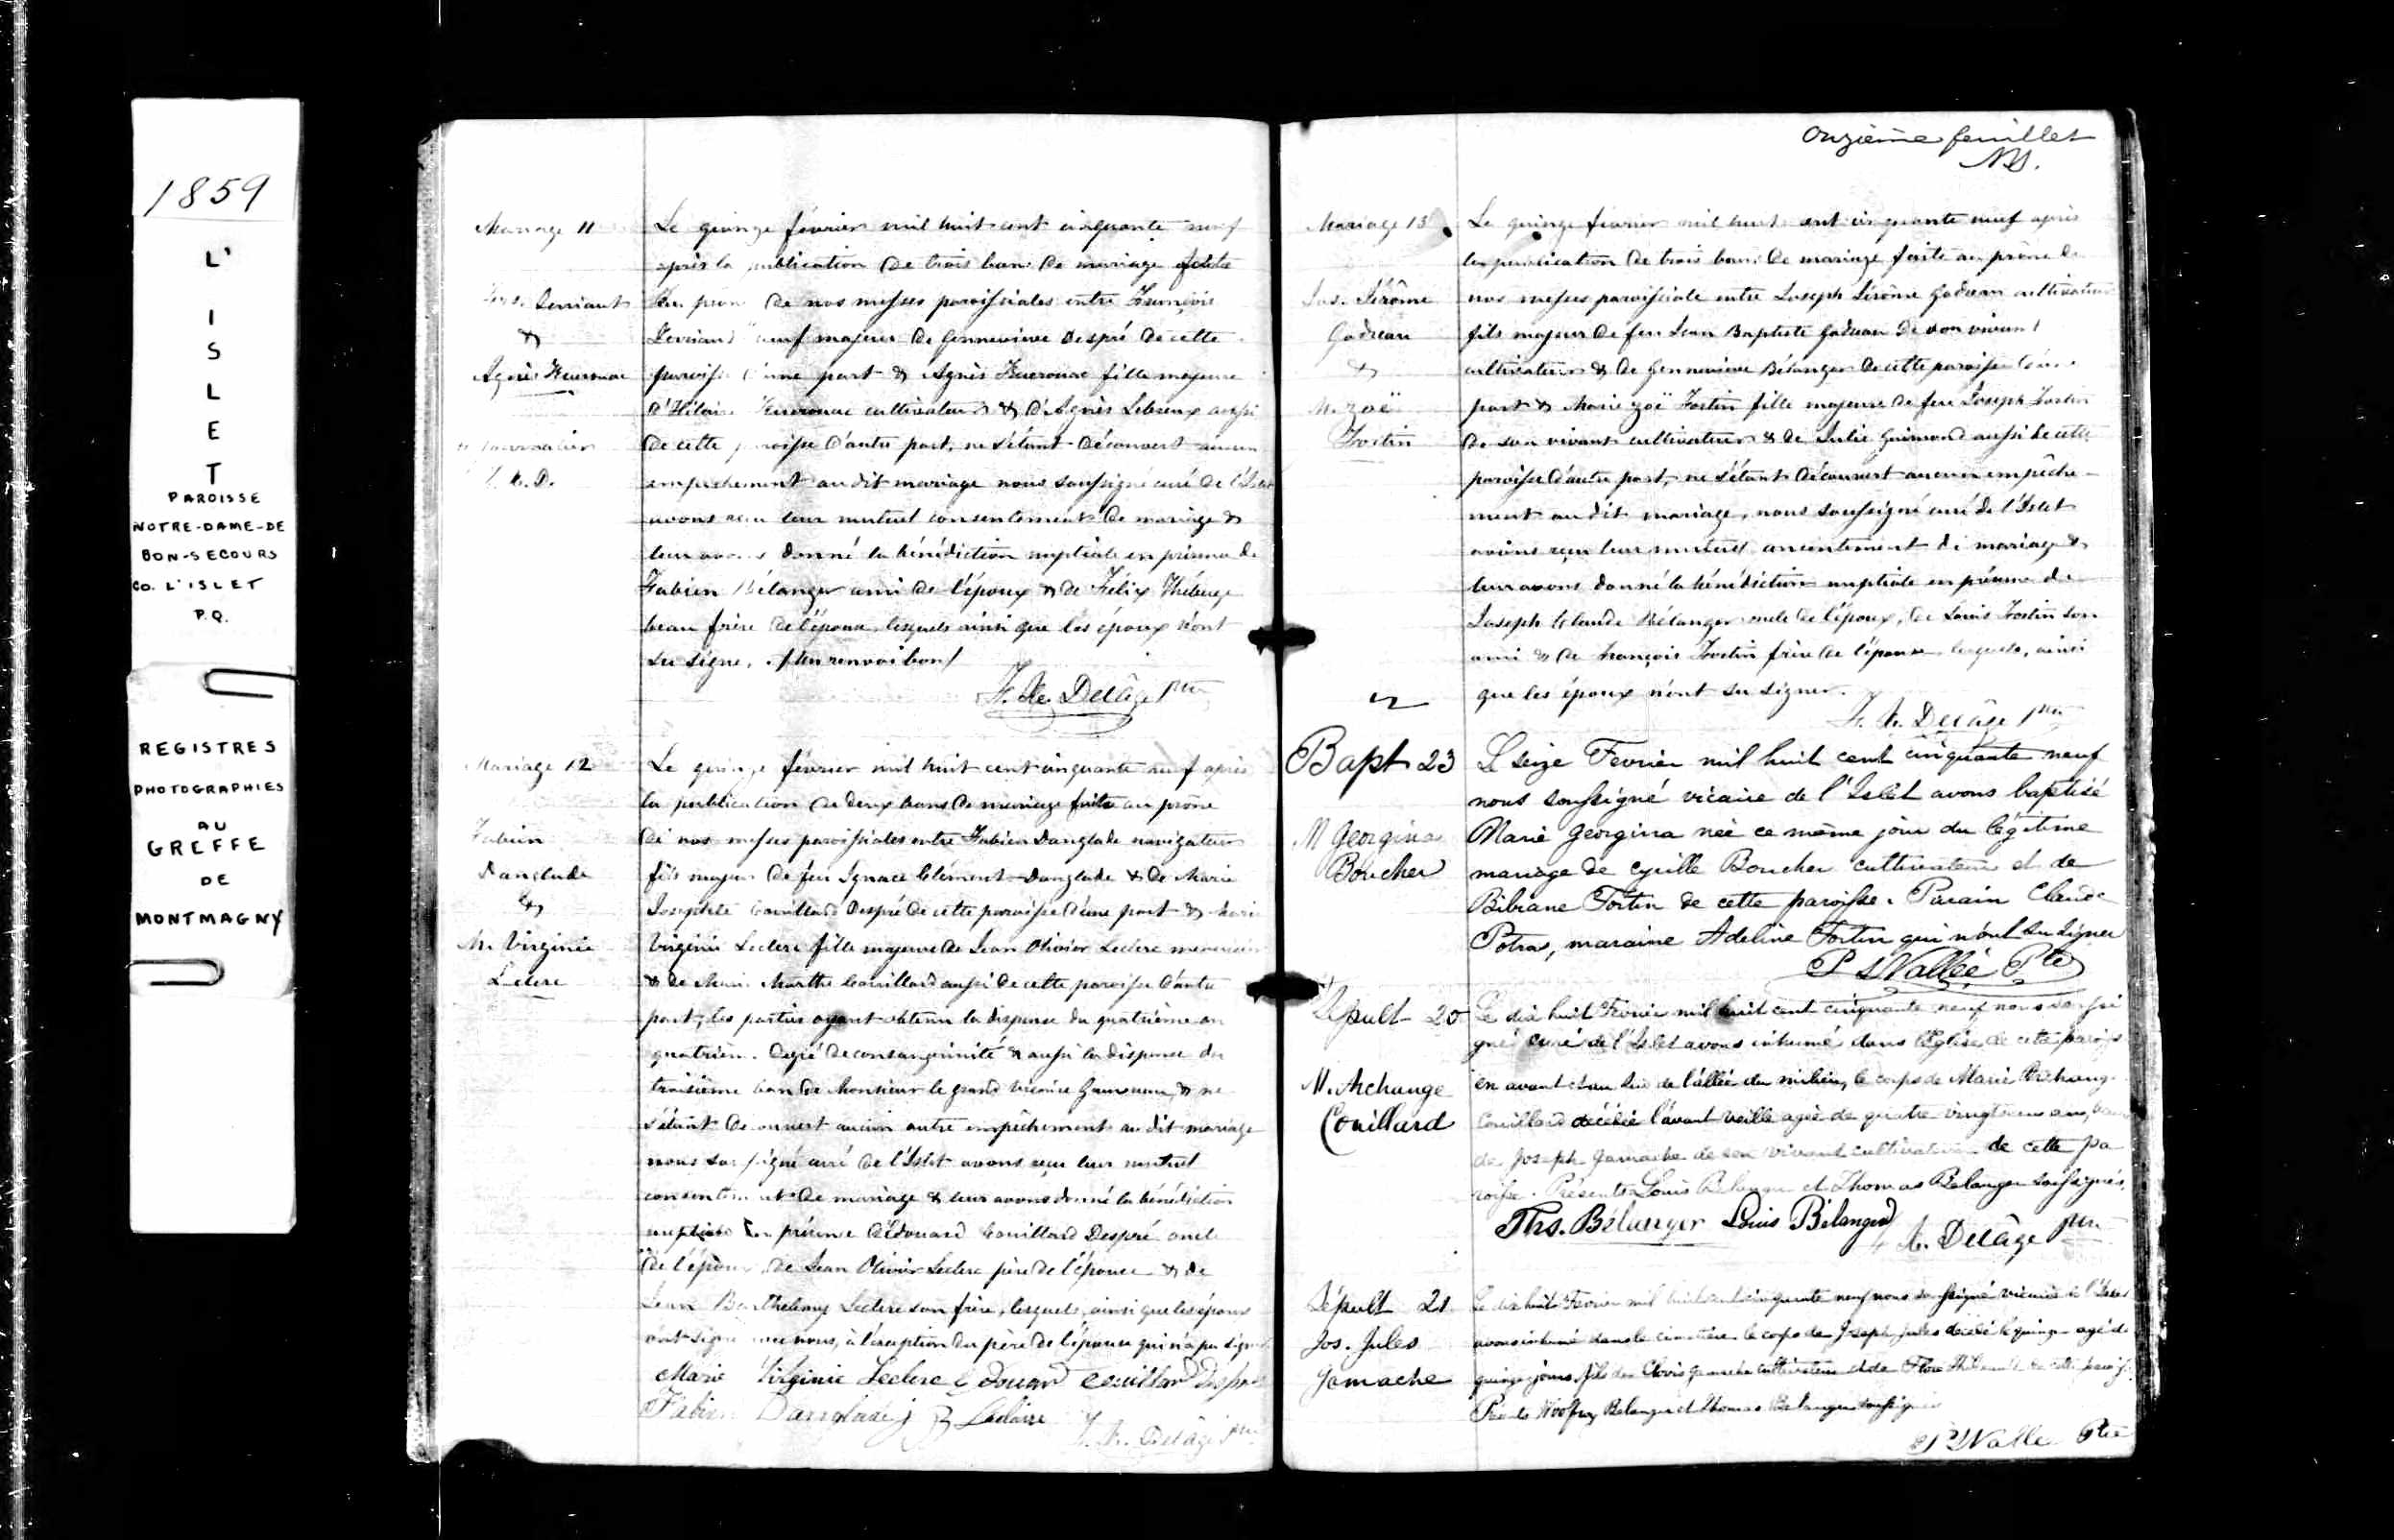 1859
L'
I
S
L
E
T
PAROISSE
NOTRE-DAME-DE
BON-SECOURS
CO. L'ISLET
P.Q.
REGISTRES
PHOTOGRAPHIES
AU
GREFFE
DE
MONTMAGNY
Mariage 11
&
Agnès
Le quinze février mil huit cent cinquante neuf
après la publication de trois bans de mariage faite
au de nos messes paroissiales entre François
veuf majeur de Gennevieve Despré de cette
paroisse d'une part & Agnès fille majeure
d'Hilaire cultivateur & d'Agnès Lebreux aussi
de cette paroisse d'autre part, ne s'étant découvert aucun
empêchement au dit mariage nous soussigné curé de l'Islet
avons reçu leur mutuel consentement de mariage &
leur avons donné la bénédiction nuptiale en présence de
Fabien Bélanger ami de l'époux & de Félix Théberge
beau frère de l'épouse, lesquels ainsi que les époux n'ont
su signer. /un renvoi bon/
Delâge ptre
Mariage 12
Fabien
Danglade
&
M. Virginie
Leclerc
Le quinze février mil huit cent cinquante neuf après
la publication de deux bans de mariage faite au prône
de nos messes paroissiales entre Fabien Danglade navigateur
fils majeur de feu Ignace Clément Danglade & de Marie
Josephte Couillard Despré de cette paroisse d'une part & Marie
Virginie Leclerc fille majeure de Jean Olivier Leclerc menuisier
& de Marie Marthe Couillard aussi de cette paroisse d'autre
part, les parties ayant obtenu la dispense du quatrième au
quatrième degré de consanguinité & aussi la dispense du
troisième ban de Monsieur le grand vicaire & ne
s'étant découvert aucun autre empêchement au dit mariage
nous soussigné curé de l'Islet avons reçu leur mutuel
consentement de mariage & leur avons donné la bénédiction
nuptiale en présence d'Edouard Couillard Despré oncle
de l'époux, de Jean Olivier Leclerc père de l'épouse & de
Jean Barthelemy Leclerc son frère, lesquels, ainsi que les époux
ont signé avec nous, à l'exception du père de l'épouse qui n'a pu signer
Marie Virginie Leclerc Edouard Couillard Despré
Fabien Danglade J B Leclaire
Delâge ptre
Onzième feuillet
Mariage 13
Jos. Jérôme
Gadreau
&
M. Zoë
Fortin
Le quinze février mil huit cent cinquante neuf après
la publication de trois bans de mariage faite au prône de
nos messes paroissiale entre Joseph Jérôme Gadreau cultivateur
fils majeur de feu Jean Baptiste Gadreau de son vivant
cultivateur & de Gennevieve Bélanger de cette paroisse d'une
part & Marie Zoë Fortin fille majeure de feu Joseph Fortin
de son vivant cultivateur & de Julie Guimond aussi de cette
paroisse d'autre part, ne s'étant découvert aucun empêche-
ment au dit mariage, nous soussigné curé de l'Islet
avons reçu leur mutuel consentement de mariage &
leur avons donné la bénédiction nuptiale en présence de
Joseph Claude Bélanger oncle de l'époux, de Louis Fortin son
ami & de François Fortin frère de l'épouse lesquels, ainsi
que les époux n'ont su signer.
Delâge ptre
Bapt 23
M Georgina
Boucher
Le seize Fevrier mil huit cent cinquante neuf
nous soussigné vicaire de l'Islet avons baptisé
Marie Georgina née ce même jour du légitime
mariage de Cyrille Boucher cultivateur et de
Bibiane Fortin de cette paroisse. Parain Claude
Potra, maraine Adeline Fortin qui n'ont su signer
P Vallée Ptre
Sépult 20
M. Archange
Couillard
Le dix huit Fevrier mil huit cent cinquante neuf nous soussi
gné curé de l'Islet avons inhumé dans l'Eglise de cette parois
en avant de l'allée du milieu, le corps de Marie Archange
Couillard décédée l'avant veille agée de quatre vingt ans,
de Joseph Gamache de son vivant cultivateur de cette pa
roisse. Présents Louis Belanger et Thomas Belanger soussignés.
Ths. Bélanger Louis Bélanger Delâge ptre
Sépult 21
Jos. Jules
Gamache
Le dix huit Fevrier mil huit cent cinquante neuf nous soussigné vicaire de l'Islet
avons inhumé dans le cimetière le corps de Joseph Jules décédé le quinze agé de
quinze jours fils de Clovis Gamache cultivateur et de Flore de cette paroisse
Présents Belanger et Thomas Belanger soussignés
Ptre